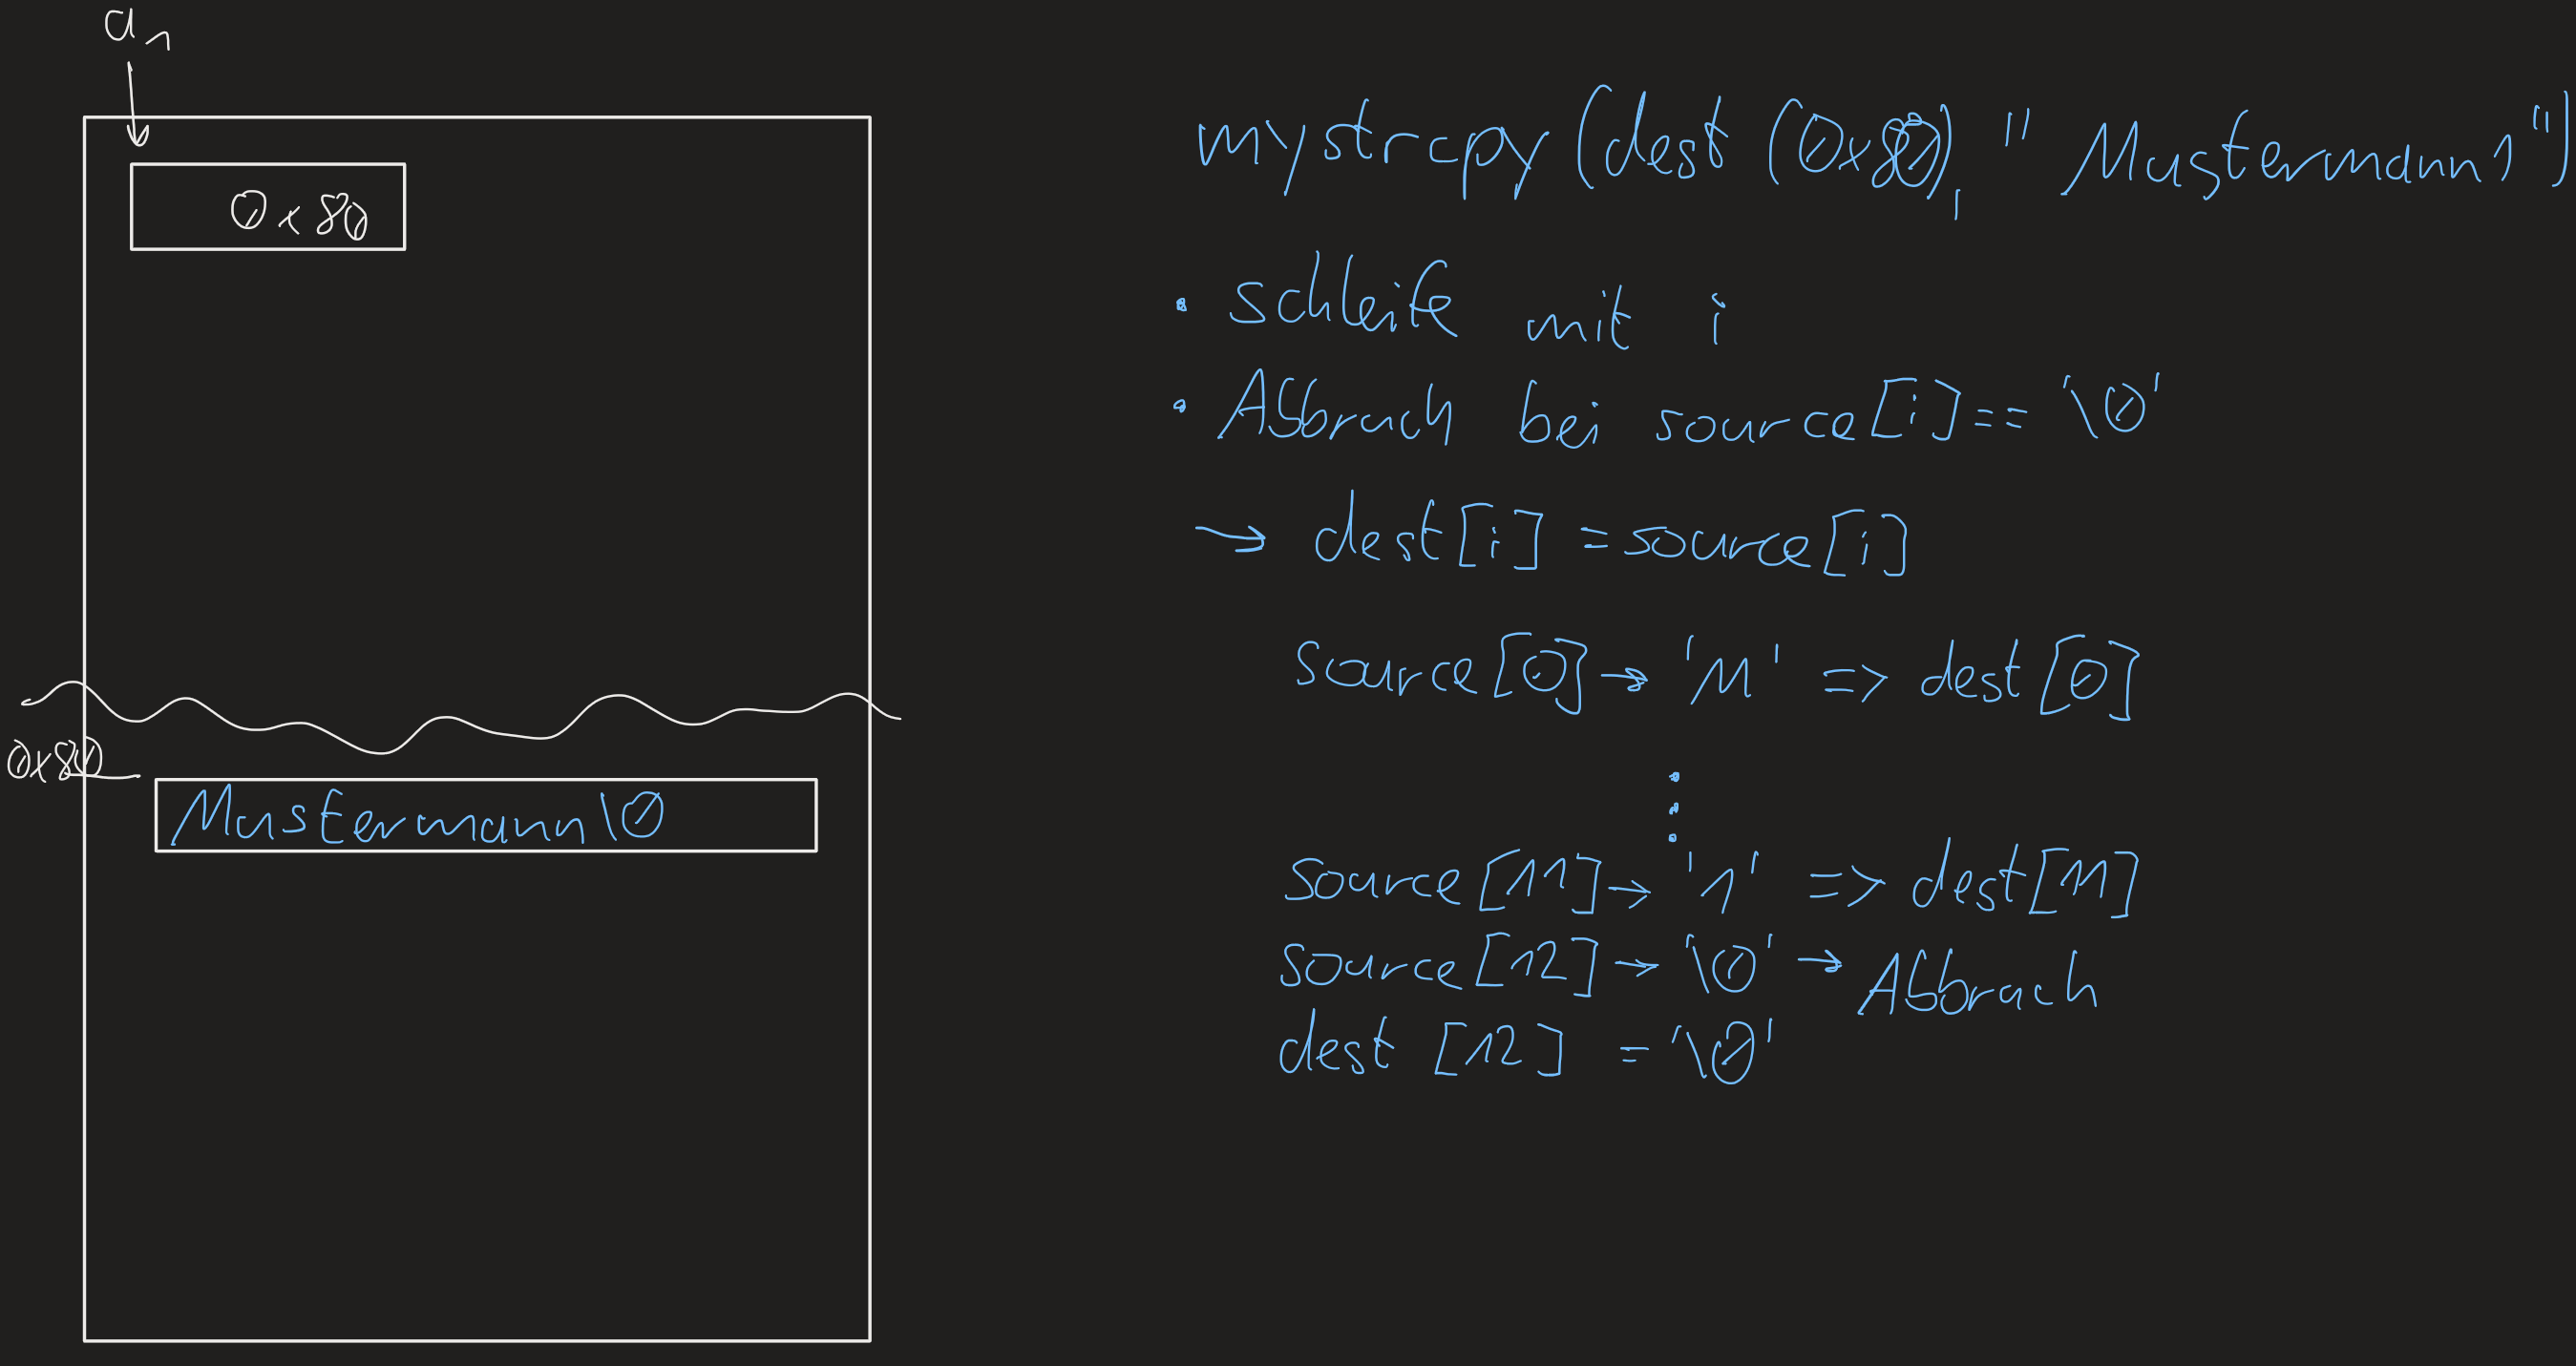 a1
0x80
0x80
Mustermann\0
mystrcpy(dest (0x80), "Mustermann1")
• Schleife mit i
• Abbruch bei source[i]== '\0'
→ dest[i] =source[i]
source[0]→ 'M' => dest[0]
⋮
source[11]→ '1' => dest[11]
source[12]→ '\0' → Abbruch
dest [12] = '\0'